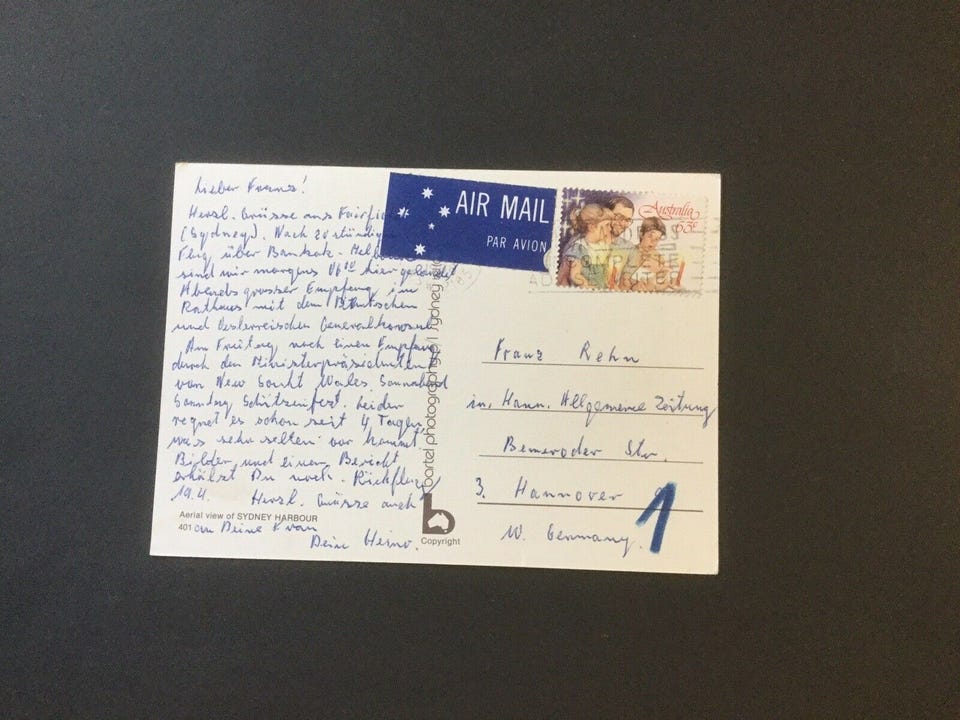 Lieber Franz!
Herzl. Grüsse aus Fairfie
(Sydney). Nach 20 stündig
Flug über Bankok - Melb
sind wir morgens hier gelandet
Abends grosser Empfang im
Rathaus mit dem Deutschen
und Oesterreischen Generalkonsul
Am Freitag noch einen Empfang
durch den Ministerpräsidenten
von New Wales. Sonnabend
Sonntag Schützenfest. Leider
regnet es schon seit 4 Tagen,
was sehr selten vor kommt
Bilder und einen Bericht
erhälst Du noch. Rückflug
19.4. Herzl. Grüsse auch
an Deine Frau
Dein Heino.
Aerial view of SYDNEY HARBOUR
401
bartel photography p/l sydney
b
Copyright
AIR MAIL
PAR AVION
Australia
Franz Rehn
in, Hann. Allgemeine Zeitung
Bemeroder Str.
3. Hannover
W. Germany.
1